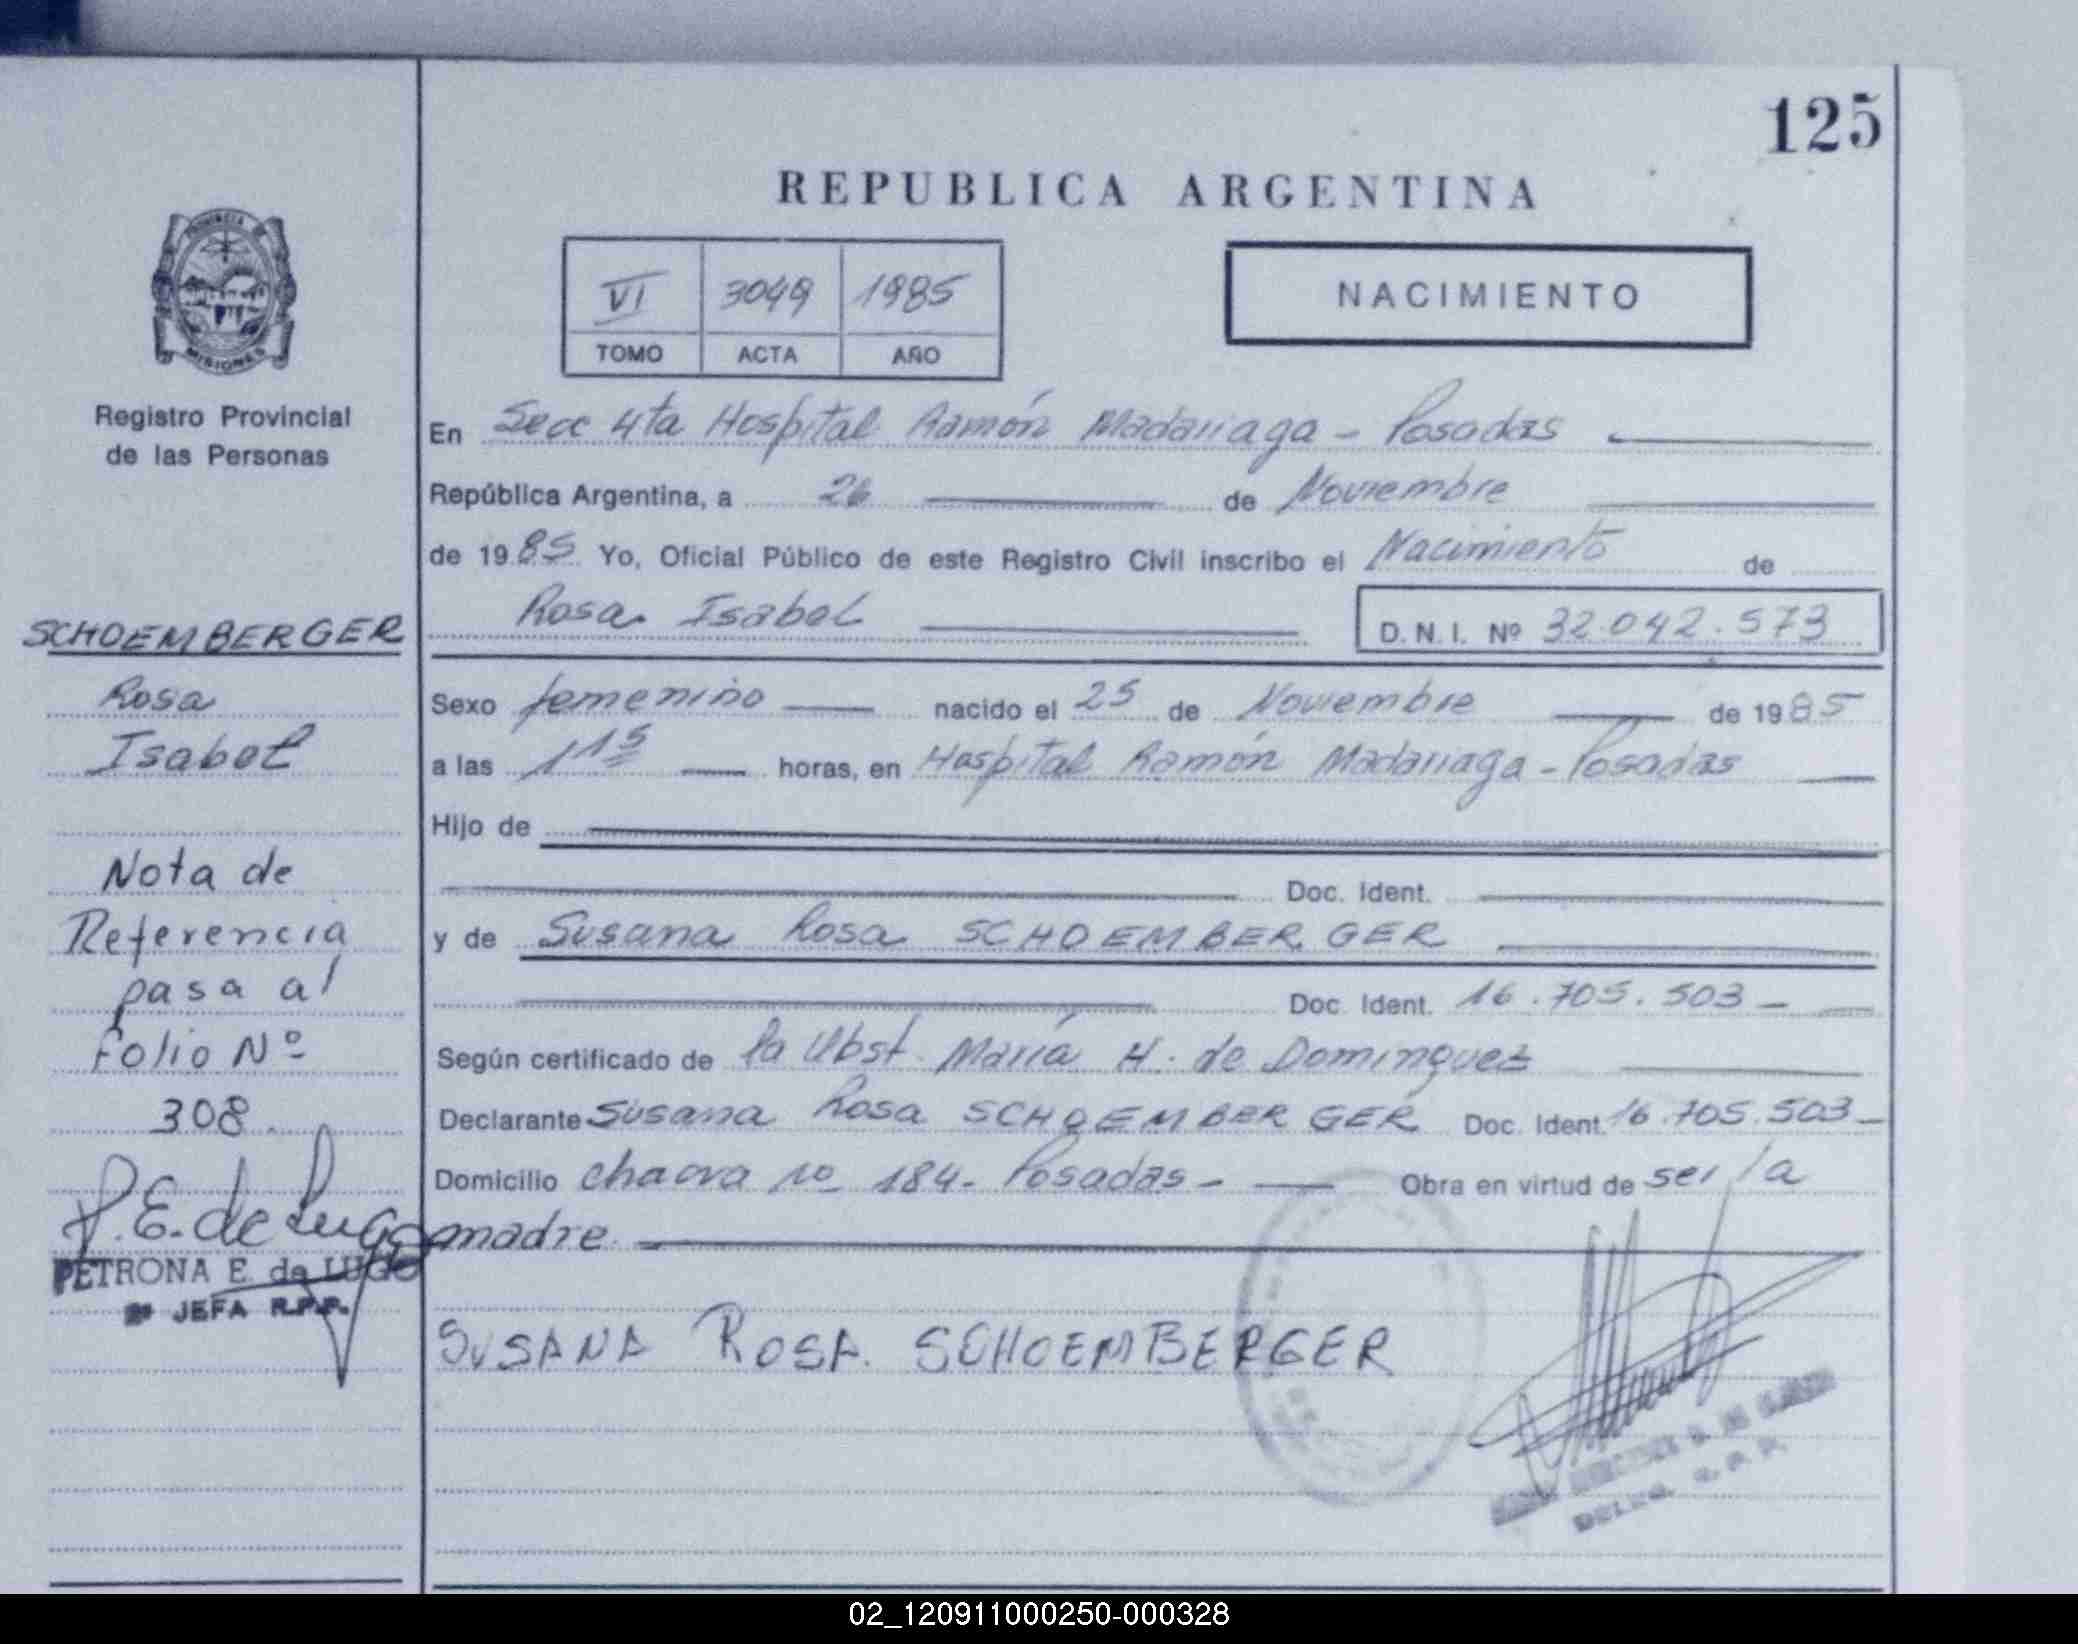 125
REPUBLICA ARGENTINA
VI 3049 1985
TOMO ACTA AÑO
NACIMIENTO
PROVINCIA DE
MISIONES
Registro Provincial
de las Personas
SCHOEMBERGER
Rosa
Isabel
Nota de
Referencia
pasa al
Folio Nº
308.
P. E. de Lugo
PETRONA E. de LUGO
JEFA R.P.P.
En Secc 4ta Hospital Ramón Madariaga - Posadas
República Argentina, a 26 de Noviembre
de 1985 Yo, Oficial Público de este Registro Civil inscribo el Nacimiento de
Rosa Isabel D.N.I. Nº 32.042.573
Sexo femenino nacido el 25 de Noviembre de 1985
a las 1 15 horas, en Hospital Ramón Madariaga - Posadas
Hijo de
Doc. Ident.
y de Susana Rosa SCHOEMBERGER
Doc. Ident. 16.705.503 -
Según certificado de la Obst. María H. de Dominguez
Declarante Susana Rosa SCHOEMBERGER Doc. Ident. 16.705.503 -
Domicilio chacra nº 184 - Posadas - Obra en virtud de ser la
madre
SUSANA ROSA SCHOEMBERGER
DELEG. R. P. P.
02_120911000250-000328